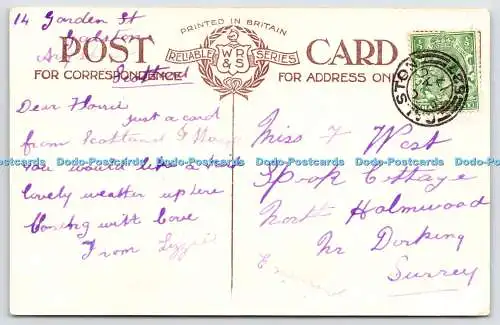 14 Garden St
Galston
Scotland
PRINTED IN BRITAIN
POST CARD
RELIABLE WR&S SERIES
FOR CORRESPONDENCE
FOR ADDRESS ONLY
Dear Florrie
just a card
from Scotland I
you would like a
lovely weather up here
Closing with love
From
Dodo-Postcards Dodo-Postcards Dodo-Postcards Dodo-Postcards Dodo-Postcards
Miss F West
Spook Cottage
North Holmwood
Nr Dorking
Surrey
GALSTON